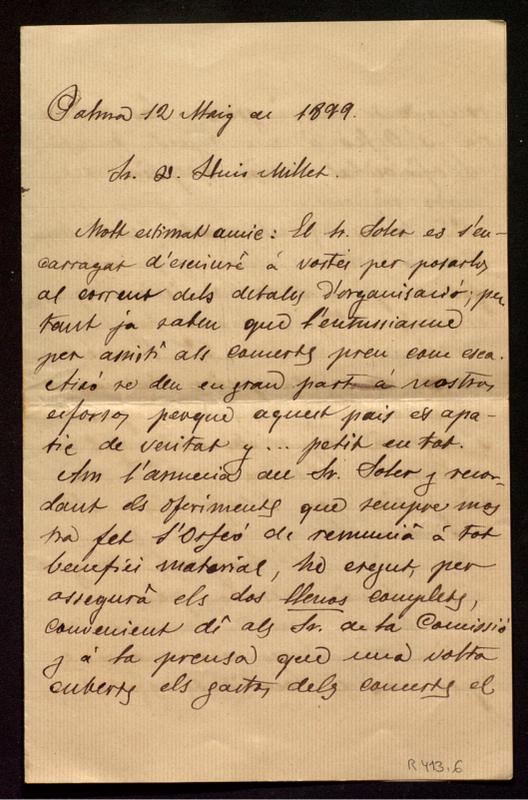 Palma 12 Maig de 1899.
Sr. D. Lluis Millet.
Molt estimat amic: El Sr. Soler es s'en-
carragat d'escriurê á vostés per posarlos
al corrent dels detalls d'organisació; per
tant ja saben que l'entussiasme
per assistí als concerts pren com esca.
Aixó se deu en gran part á nostros
esforsos perque aquest pais es apa-
tic de veritat y ... petit en tot.
Am l'armenia del Sr. Soler y recor-
dant els oferiments que sempre mos
ha fet l'Orfeó de renunciá á tot
benefici material, he cregut, per
assegurá els dos llenos complets,
convenient dí als Sr. de la Comissió
y á la prensa que una volta
cuberts els gastos dels concerts el
R 413.6